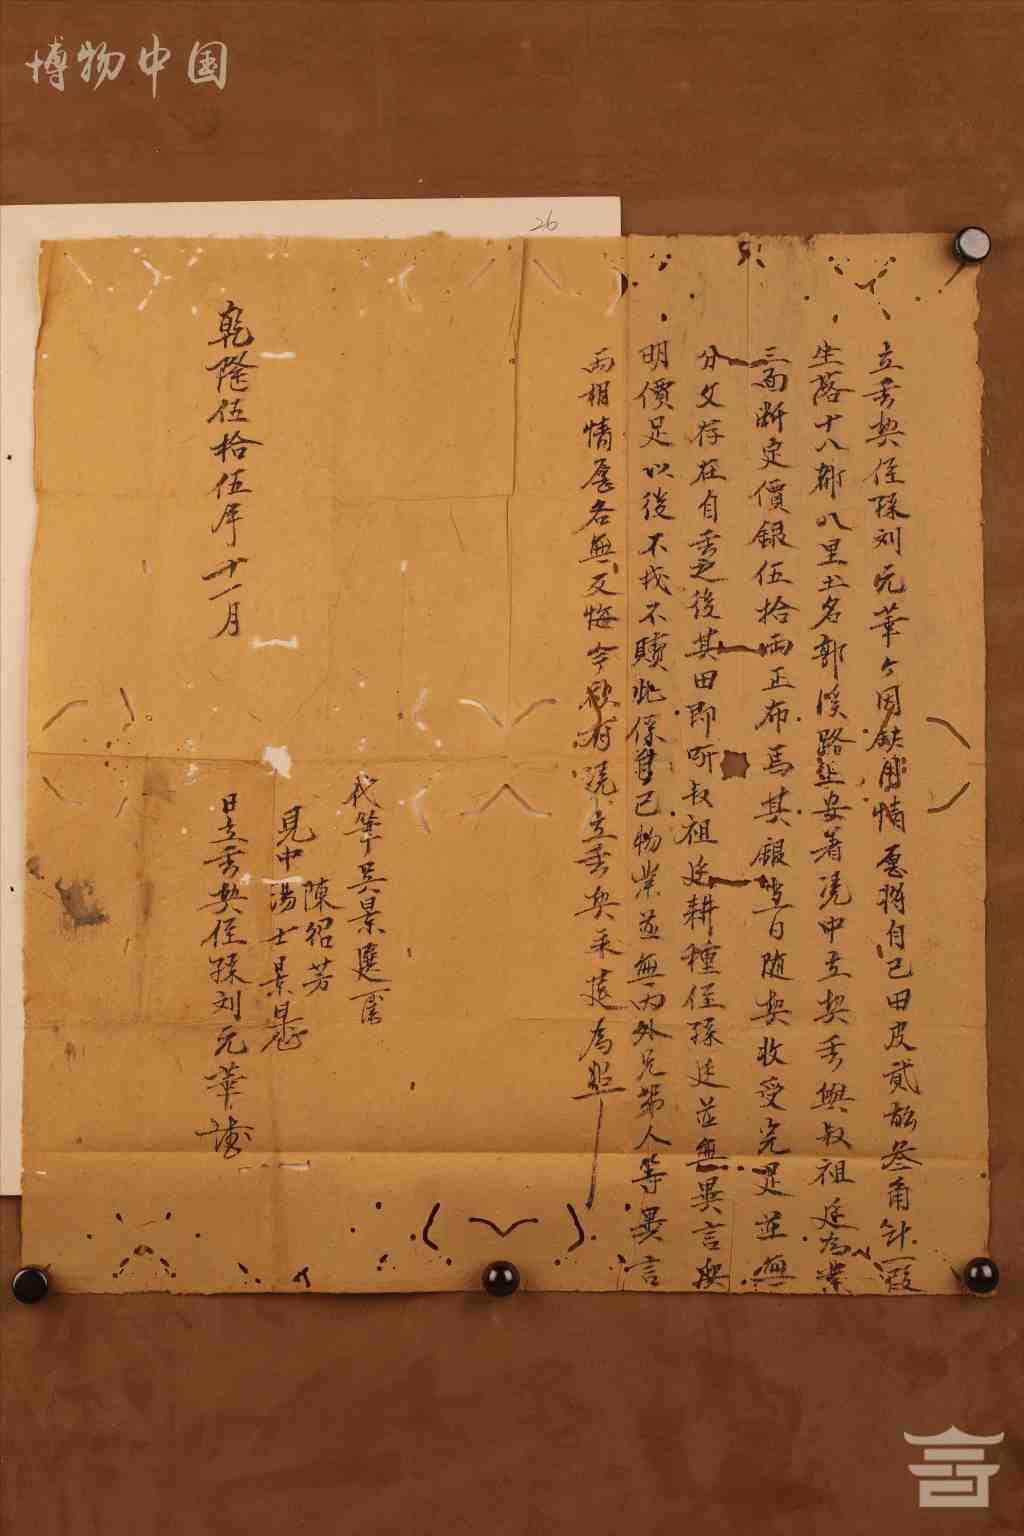 博物中国
26
立賣契侄孫刘元華今因缺用情愿將自己田皮貳畝叁角計一段
坐落十八都八里土名郭溪路上安着凴中立契賣與叔祖廷為業
三面断定價銀伍拾両正布馬其銀當日随契收受完足並無
分文存在自賣之後其田即听叔祖廷耕種侄孫廷並無異言契
明價足以後不找不贖此係自己物業並無内外兄弟人等異言
両相情愿各無反悔今欲有凴立賣契永遠為照
代筆吴景選
陳紹芳
見中湯士景
乾隆伍拾伍年十一月 日立賣契侄孫刘元華